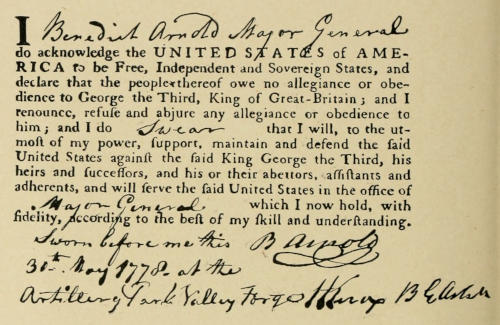 I Benedict Arnold Major General
do acknowledge the UNITED STATES of AME-
RICA to be Free, Independent and Sovereign States, and
declare that the people thereof owe no allegiance or obe-
dience to George the Third, King of Great-Britain; and I
renounce, refuſe and abjure any allegiance or obedience to
him; and I do Swear that I will, to the ut-
moſt of my power, ſupport, maintain and defend the ſaid
United States againſt the ſaid King George the Third, his
heirs and ſucceſſors, and his or their abettors, aſſiſtants and
adherents, and will ſerve the ſaid United States in the office of
Major General which I now hold, with
fidelity, according to the beſt of my skill and underſtanding.
Sworn before me this B Arnold
30th May 1778 at the
Artillery Park Valley Forge HKnox B G Artill